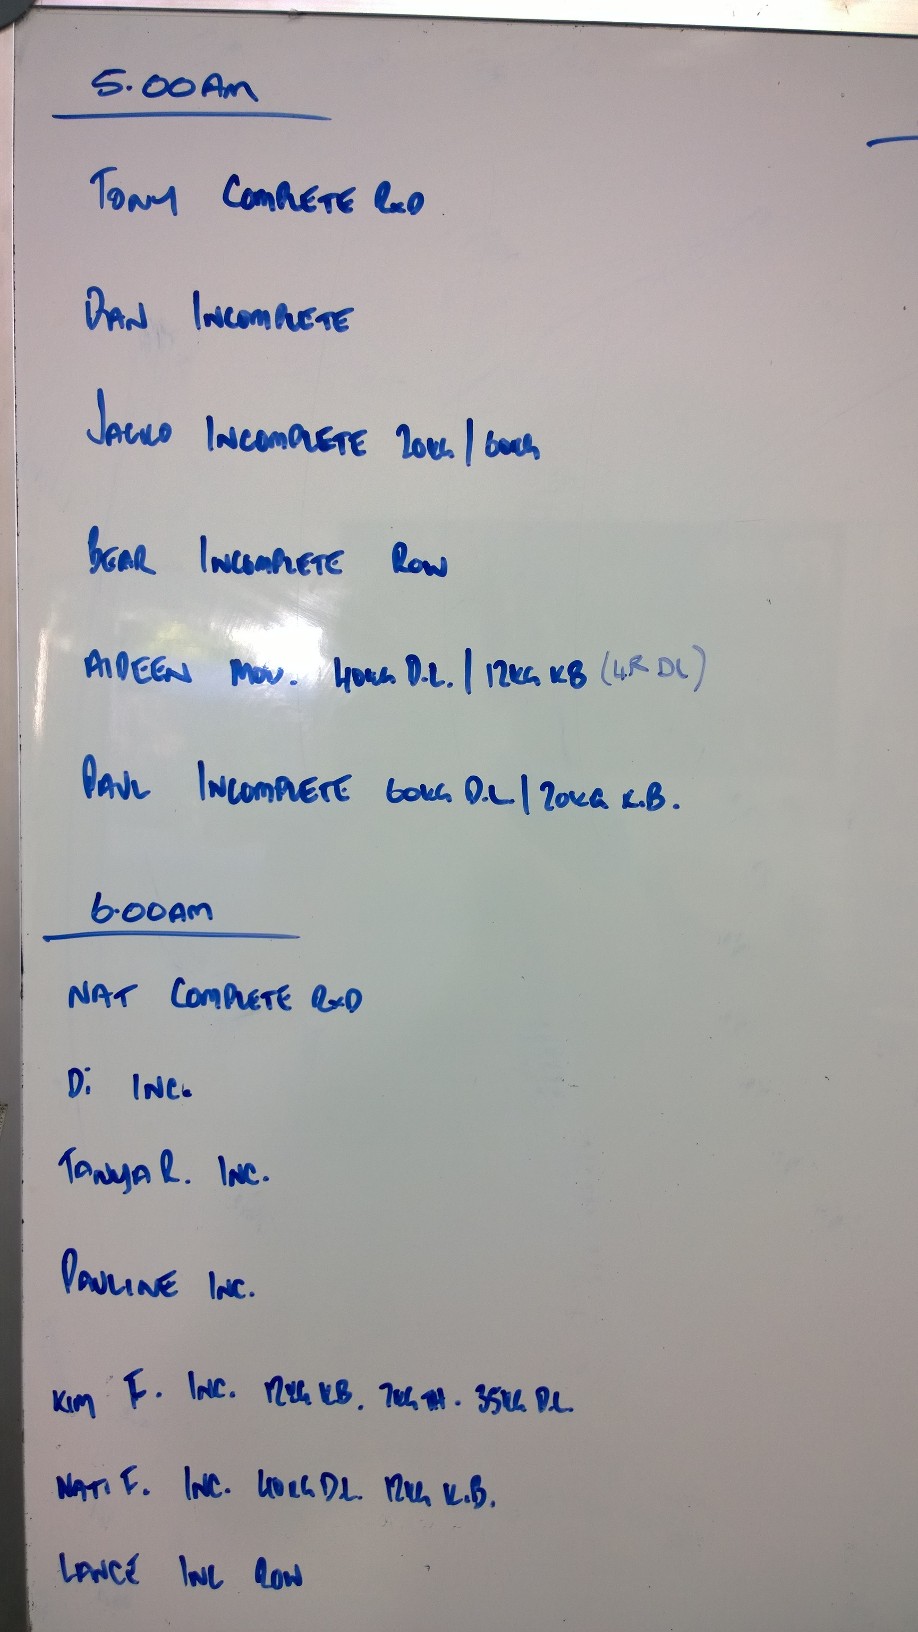 5.00AM
TONY COMPLETE RxD
DAN INCOMPLETE
JACKO INCOMPLETE 20KG / 60KG
BEAR INCOMPLETE ROW
AIDEEN MOD. 40KG D.L. / 12KG KB (4R DL)
PAUL INCOMPLETE 60KG D.L / 20KG K.B.
6.00AM
NAT COMPLETE RxD
Di INC.
TANYA R. INC.
PAULINE INC.
KIM F. INC. 12KG KB. 7KG TH. 35KG DL.
NATI F. INC. 40KG DL. 12KG K.B.
LANCE INC ROW